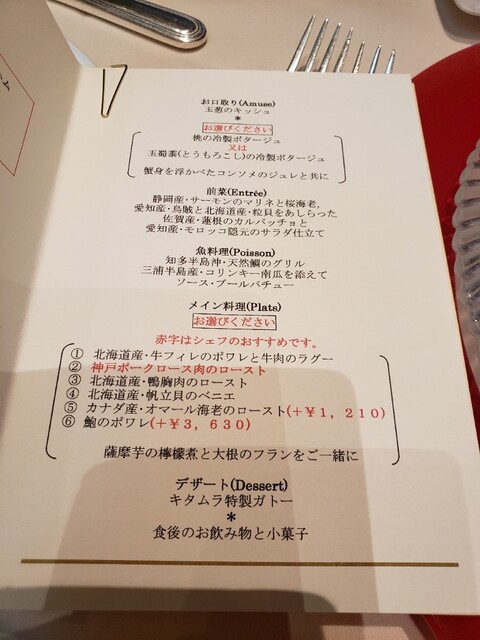 お口取り(Amuse)
玉葱のキッシュ
＊
お選びください
桃の冷製ポタージュ
又は
玉蜀黍(とうもろこし)の冷製ポタージュ
蟹身を浮かべたコンソメのジュレと共に
前菜(Entrée)
静岡産・サーモンのマリネと桜海老,
愛知産・烏賊と北海道産・粒貝をあしらった
佐賀産・蓮根のカルパッチョと
愛知産・モロッコ隠元のサラダ仕立て
魚料理(Poisson)
知多半島沖・天然鯛のグリル
三浦半島産・コリンキー南瓜を添えて
ソース・ブールバチュー
メイン料理(Plats)
お選びください
赤字はシェフのおすすめです。
① 北海道産・牛フィレのポワレと牛肉のラグー
② 神戸ポークロース肉のロースト
③ 北海道産・鴨胸肉のロースト
④ 北海道産・帆立貝のベニエ
⑤ カナダ産・オマール海老のロースト(+￥1，210)
⑥ 鮑のポワレ(+￥3，630)
薩摩芋の檸檬煮と大根のフランをご一緒に
デザート(Dessert)
キタムラ特製ガトー
＊
食後のお飲み物と小菓子